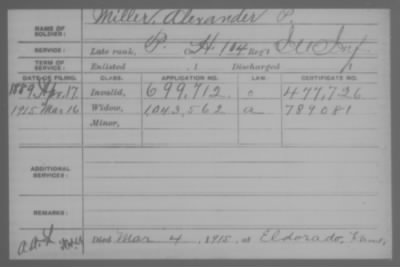 NAME OF SOLDIER: Miller, Alexander P.
SERVICE: Late rank, P. H 104 Reg't Ill Inf.
TERM OF SERVICE: Enlisted , 1 Discharged , 1
DATE OF FILING. CLASS. APPLICATION NO. LAW. CERTIFICATE NO.
1889 Apr. 17 Invalid, 699,712 c 477,726
1915 Mar 16 Widow, 1043,562 a 789081
Minor,
ADDITIONAL SERVICES:
REMARKS:
Died Mar 4, 1915, at Eldorado, Kans,